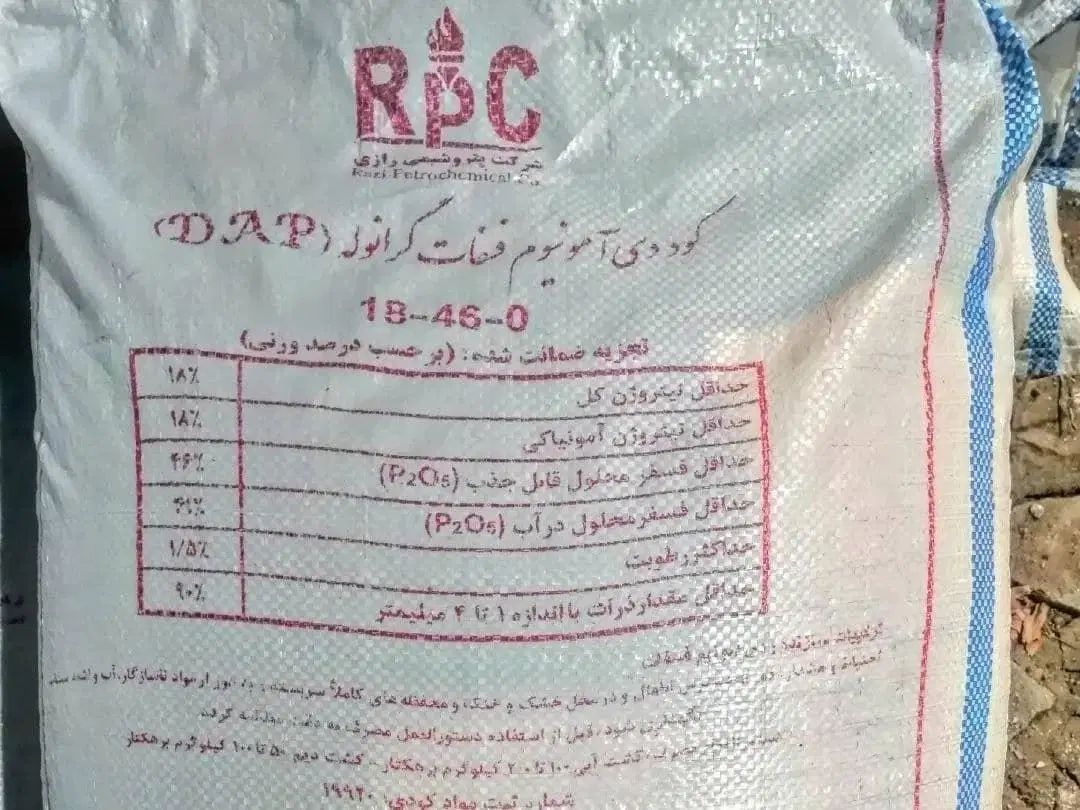 RPC
شرکت پتروشیمی رازی
Razi Petrochemical Co
کود دی آمونیوم فسفات گرانول (DAP)
18-46-0
تجزیه ضمانت شده: (بر حسب درصد وزنی)
حداقل نیتروژن کل ۱۸٪
حداقل نیتروژن آمونیاکی ۱۸٪
حداقل فسفر محلول قابل جذب (P2O5) ۴۶٪
حداقل فسفر محلول در آب (P2O5) ۴۱٪
حداکثر رطوبت ۱/۵٪
حداقل مقدار ذرات با اندازه ۱ تا ۴ میلیمتر ۹۰٪
فسفات
اطفال و در محل خشک و خنک و محفظه های کاملاً سربسته و به دور از مواد ناسازگار، آب و
نگهداری شود، قبل از استفاده دستورالعمل مصرف به دقت مطالعه گردد
کشت آبی ۱۰۰ تا ۲۰۰ کیلوگرم بر هکتار - کشت دیم ۵۰ تا ۱۰۰ کیلوگرم بر هکتار
شماره ثبت مواد کودی: ۱۹۹۲۰